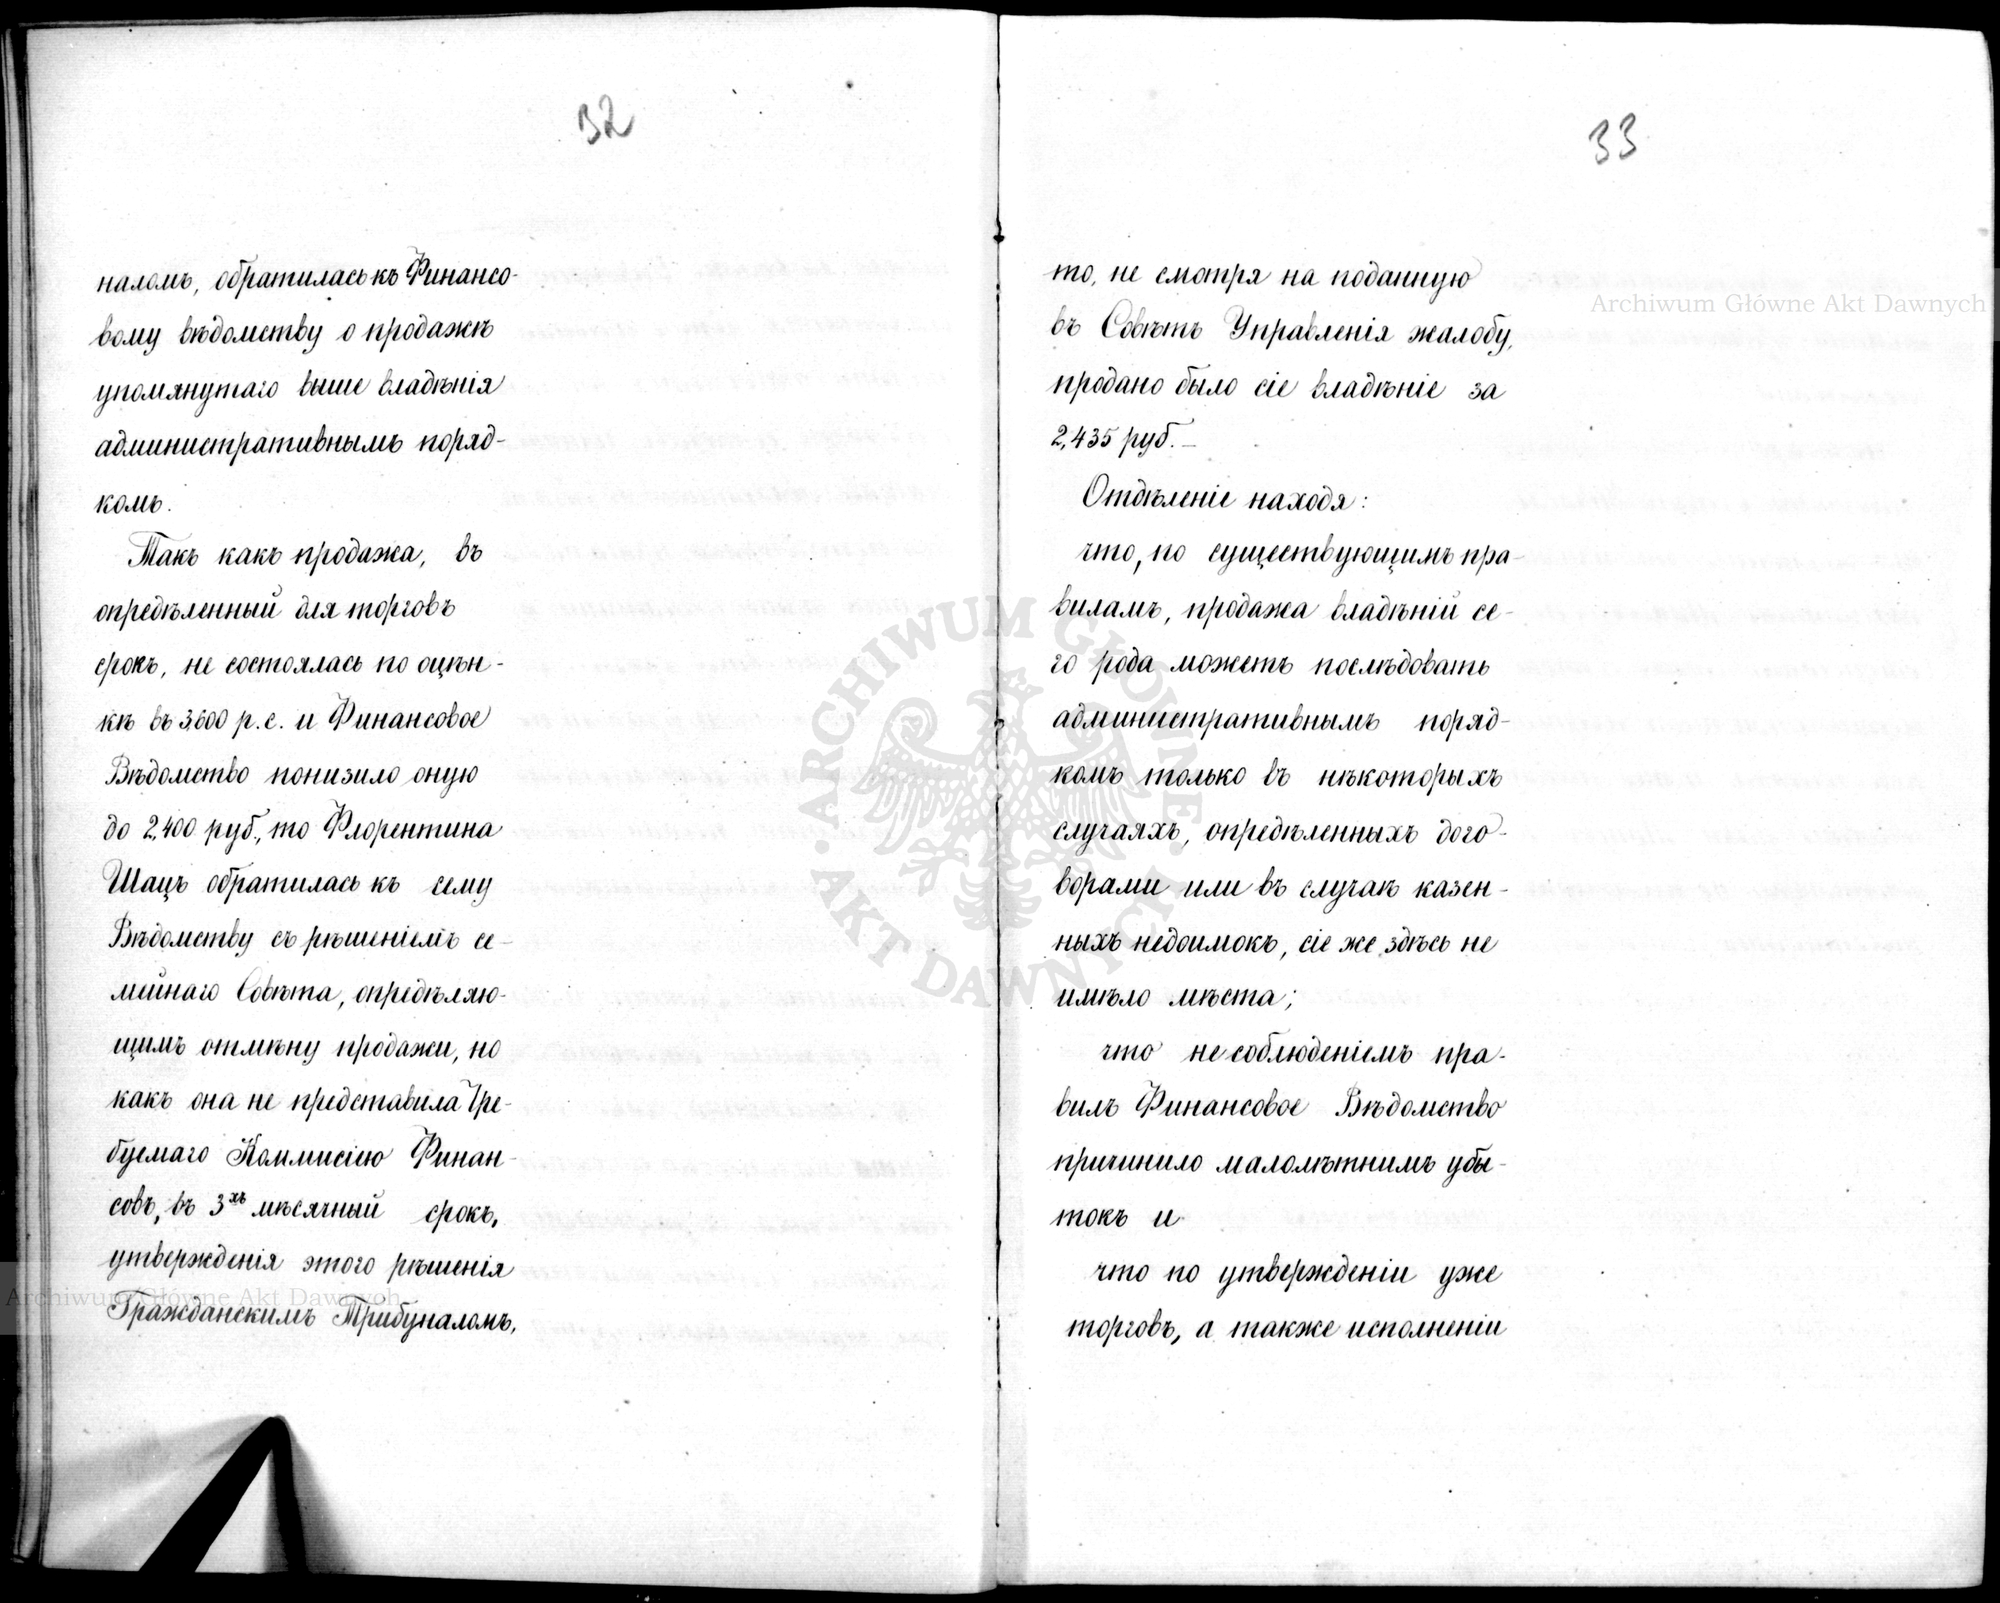 32
наломъ, обратилась къ Финансо-
вому вѣдомству о продажѣ
упомянутаго выше владѣнія
административнымъ поряд-
комъ.
Такъ какъ продажа, въ
опредѣленный для торговъ
срокъ, не состоялась по оцѣн-
кѣ въ 3600 р. с. и Финансовое
Вѣдомство понизило оную
до 2,400 руб., то Флорентина
Шацъ обратилась къ сему
Вѣдомству съ рѣшеніемъ се-
мейнаго Совѣта, опредѣляю-
щимъ отмѣну продажи, но
какъ она не представила тре-
буемаго Коммисіею Финан-
совъ, въ 3хъ мѣсячный срокъ,
утвержденія этого рѣшенія
Гражданскимъ Трибуналомъ,
33
то, не смотря на поданную
въ Совѣтъ Управленія жалобу,
продано было сіе владѣніе за
2,435 руб. —
Отдѣленіе находя:
что, по существующимъ пра-
виламъ, продажа владѣній се-
го рода можетъ послѣдовать
административнымъ поряд-
комъ только въ нѣкоторыхъ
случаяхъ, опредѣленныхъ дого-
ворами или въ случаѣ казен-
ныхъ недоимокъ, сіе же здѣсь не
имѣло мѣста;
что несоблюденіемъ пра-
вилъ Финансовое Вѣдомство
причинило малолѣтнимъ убы-
токъ и
что по утвержденіи уже
торговъ, а также исполненіи
Archiwum Główne Akt Dawnych
Archiwum Główne Akt Dawnych
ARCHIWUM GŁÓWNE
AKT DAWNYCH